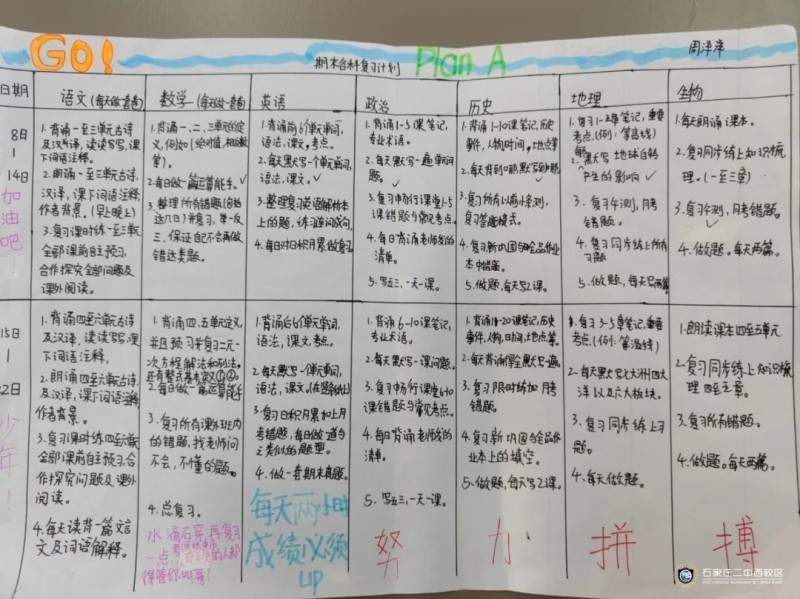 GO!
期末各科复习计划
Plan A
日期
语文(每天做一套卷)
数学(每天做一套卷)
英语
政治
历史
地理
生物
8日
14日
加油吧
1.背诵一至三单元古诗
及汉译,读读写写,课
下词语注释。
2.朗诵一至三单元古诗
汉译,课下词语注释,
作者背景。(早上晚上)
3.复习课时练一至三单元
全部课前自主预习,
合作探究全部问题及
课外阅读。
1.背诵一、二、三单元的定
义,例如(绝对值,相反数
等)。
2.每日做一篇运算能手。
3.整理所有错题(8日抄
这八日)并复习,举一反
三,保证自己不会再做
错这类题。
1.背诵前6个单元单词,
语法,课文。
2.每天默写一个单元单词,
语法,课文。
3.整理复习英语解析本
上的题,练习连词成句。
4.每日对日积月累做复习
1.背诵1-5课笔记,
专业术语。
2.每天默写一遍单元问
题。
3.复习畅行课堂1-5
课错题与常见考点。
4.每日背诵老师发的
清单。
5.写五三,一天一课。
1.背诵1-10课笔记,历史
事件,人物时间,地点等
3.复习所有以前小测,
复习答题模式。
4.复习新巩固与全品作业
本中错题。
5.做题,每天写2课。
1.复习1-2章笔记,重要
考点。(例:等高线)
2.默写地球自转
产生的影响
3.复习小测,月考
错题。
4.复习同步练上所有
习题
5.做题,每天写两篇。
1.每天朗诵课本。
2.复习同步练上知识梳
理。(一至三章)
3.复习小测,月考错题。
4.做题。每天两篇。
15日
22日
少年!
1.背诵四至六单元古诗
及汉译,读读写写,课
下词语注释,
2.朗诵四至六单元古诗
及汉译,课下词语注释
作者背景。
3.复习课时练四至六单元
全部课前自主预习,合
作探究问题及课外
阅读。
4.每天读背一篇文言
文及词语解释。
1.背诵四、五单元定义,
并且预习并复习二元一
次方程解法和列法。
2.每日做一篇运算能手
3.复习所有课外班内
的错题,找老师问
不会,不懂的题。
4.总复习。
水滴石穿,再复习
一点
1.背诵后6个单元单词,
语法,课文,考点。
2.每天默写一个单元单词,
语法,课文。
3.复习日积月累和上月
考错题,每日做一道与
之类似的题型。
4.做一套期末真题。
每天两小时
成绩必须
up
1.背诵6-10课笔记,
专业术语。
2.每天默写一课问题。
3.复习畅行课堂6-10
课错题与常见考点。
4.每日背诵老师发的
清单。
5.写五三,一天一课。
1.背诵11-20课笔记,历史
事件,人物,日间,地点等。
3.复习限时练加月考
错题。
4.复习新巩固与全品作
业本上的填空。
5.做题,每天写2课。
1.复习3-5章笔记,重要
考点。(例:等温线)
2.每天默写七大洲四大
洋以及六大板块。
3.复习同步练上习
题。
4.每天做题。
1.朗读课本四至五单元
2.复习同步练上知识梳
理四至五章。
3.复习所有错题。
4.做题。每天两篇。
努
力
拼
搏
石家庄二中西校区